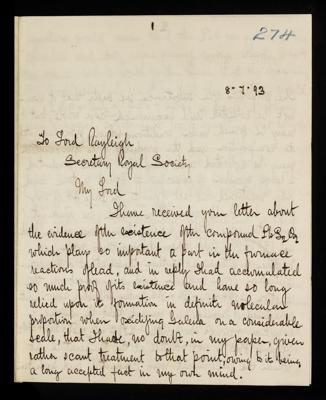 1
274
8.7.93
To Lord Rayleigh
Secretary Royal Society
My Lord
I have received your letter about
the evidence of the existence of the compound PbS2O2
which plays so important a part in the furnace
reactions of lead, and in reply I had accumulated
so much proof of its existence and have so long
relied upon its formation in definite molecular
proportion when oxidizing Galena on a considerable
scale, that I have, no doubt, in my paper, given
rather scant treatment to that point; owing to it being
a long accepted fact in my own mind.